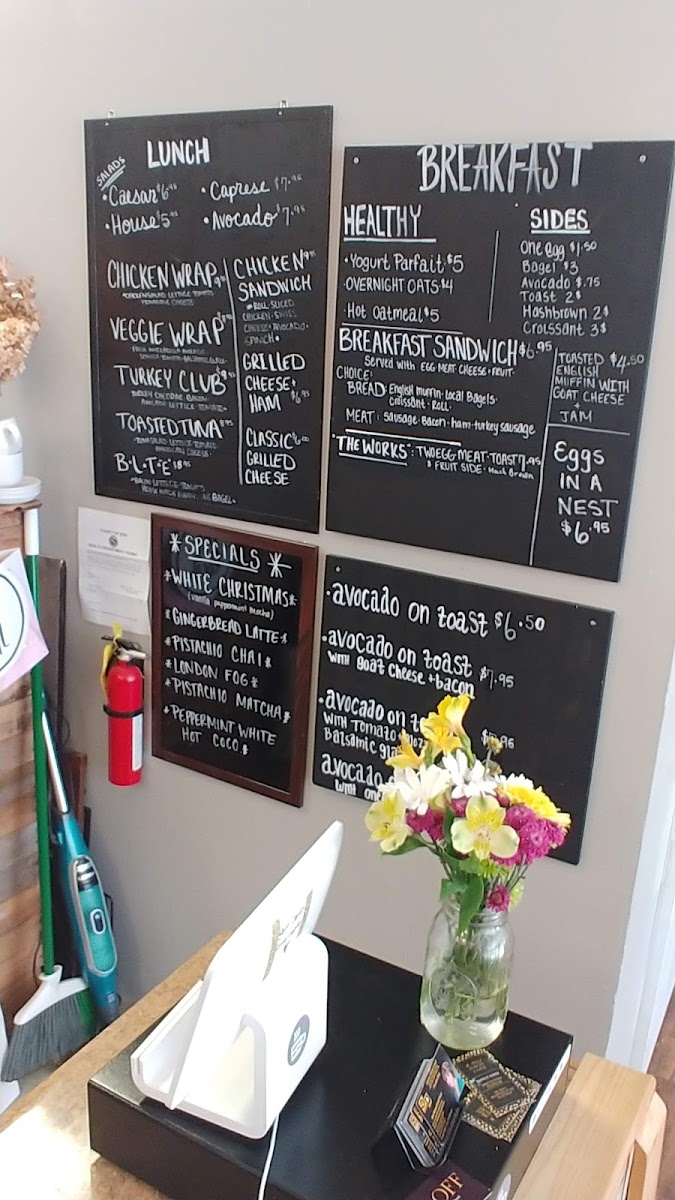 LUNCH
SALADS
• Caesar $6.95
• Caprese $7.95
• House $5.95
• Avocado $7.95
CHICKEN WRAP
VEGGIE WRAP
TURKEY CLUB
TURKEY CHEDDAR BACON
AVOCADO LETTUCE TOMATO
TOASTED TUNA
TUNA SALAD LETTUCE TOMATO
AMERICAN CHEESE
B•L•T•E
BACON LETTUCE TOMATO
BAGEL
CHICKEN
SANDWICH
ROLL SLICED
CHICKEN SWISS
CHEESE AVOCADO
SPINACH
GRILLED
CHEESE +
HAM $6.95
CLASSIC
GRILLED
CHEESE
BREAKFAST
HEALTHY
• Yogurt Parfait $5
• OVERNIGHT OATS $4
• Hot Oatmeal $5
SIDES
One egg $1.50
Bagel $3
Avocado $.75
Toast 2$
Hashbrown 2$
Croissant 3$
BREAKFAST SANDWICH $6.95
Served with EGG MEAT CHEESE • FRUIT
CHOICE:
BREAD: English muffin • Local Bagels
Croissant • Roll
MEAT: Sausage • Bacon • ham • turkey sausage
"THE WORKS": TWO EGG • MEAT • TOAST 7.95
& FRUIT SIDE • Hash Brown
TOASTED $4.50
ENGLISH
MUFFIN WITH
GOAT CHEESE
+
JAM
Eggs
IN A
NEST
$6.95
*SPECIALS*
*WHITE CHRISTMAS*
(vanilla peppermint mocha)
*GINGERBREAD LATTE*
*PISTACHIO CHAI*
*LONDON FOG*
*PISTACHIO MATCHA*
*PEPPERMINT WHITE
HOT COCO*
• avocado on toast $6.50
• avocado on toast
with goat cheese + bacon $7.95
• avocado on
WITH TOMATO
Balsamic
avocado
with
OFF